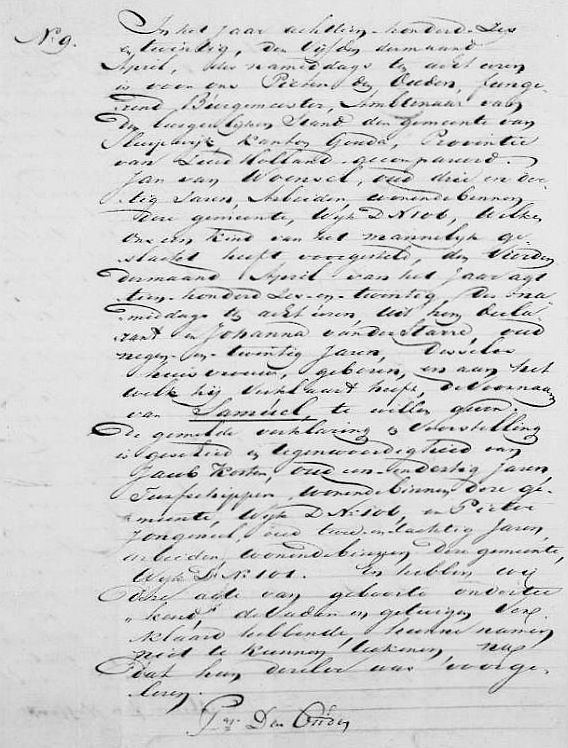 No 9.
In het Jaar achttien-honderd-Zes
en twintig, den Vijfden dermaand
April, des namiddags te acht uren
is voor ons Pieter den Ouden, funge-
rend Burgemeester, Ambtenaar van
den burgerlijken Stand der gemeente van
Sluipwijk, Kanton Gouda, Provintie
van Zuid Holland gecompareerd.
Jan van Woensel, oud drie en der-
tig Jaren, Arbeider, wonende binnen
deze gemeente, Wijk D No 106, Welke
ons een Kind van het mannelijk ge-
slacht heeft voorgesteld, den Vierden
dermaand April van het Jaar agt
tien-honderd Zes-en-twintig, des na-
middags te acht uren, uit hem Decla-
rant en Johanna van der Starre, oud
negen-en-twintig Jaren, deszelvs
huisvrouw, geboren, en aan het
welk hij Verklaart heeft, de Voornaam
van Samuel, te willen geven.
De gemelde verklaring & Voorstelling
is geschied in tegenwoordigheid van
Jacob Koster, oud een-en dertig Jaren,
Turfschipper, wonende binnen deze ge-
meente, Wijk D No 106, en Pieter
Jongeneel, oud twee en dachtig Jaren,
arbeider wonende binnen deze gemeente,
Wijk D No 101. En hebben wij
deze acte van geboorte ondertee
"kend," de Vader en getuigen Ver-
klaard hebbende hunne namen
niet te kunnen teekenen, na
dat hun dezelve was voorge-
lezen.
Pr Den Ouden